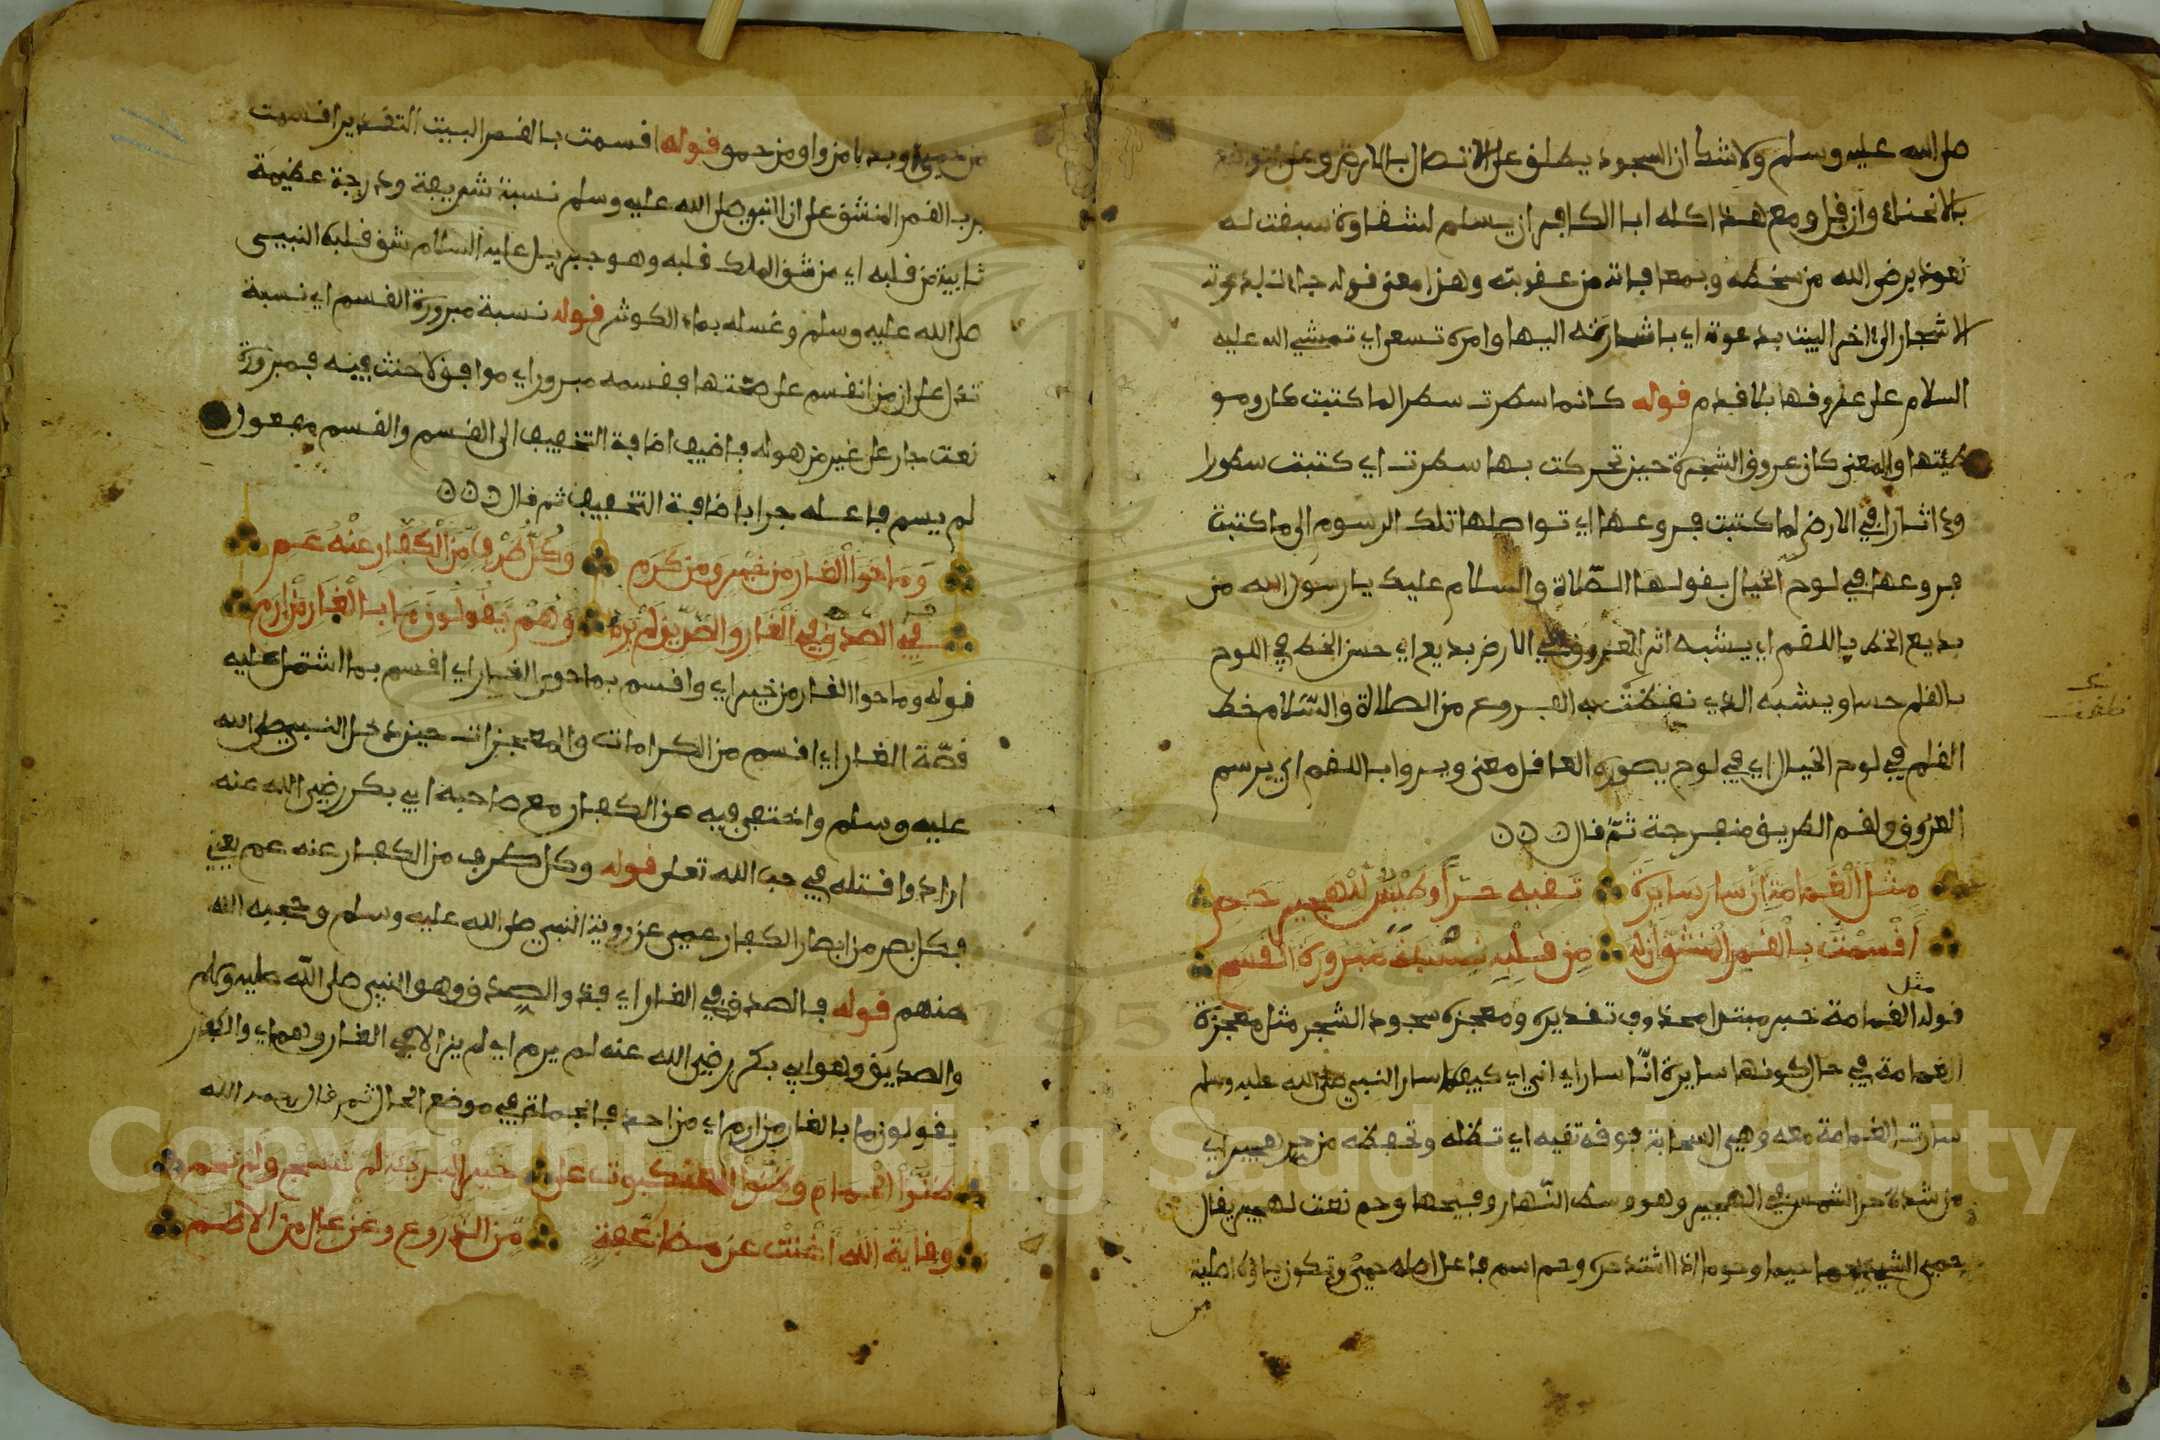 صلى الله عليه وسلم ولا شك ان السجود يطلق على الاتصال بالارض وعلى
بالانحناء وان قل ومع هذا كله ابا الكافر ان يسلم لشقاوة سبقت له
نعوذ برضى الله من سخطه وبمعافاته من عقوبته وهذا معنى قوله جاءت لدعوته
الاشجار الى ءاخر البيت بدعوة اي باشارته اليها وامره تسعى اي تمشي اليه عليه
السلام على عروقها بلا قدم قوله كانما سطرت سطرا لما كتبت
والمعنى كان عروق الشجرة حين تحركت بها سطرت اي كتبت سطورا
وءاثارا في الارض لما كتبت فروعها اي تواصلها تلك الرسوم الى ما كتبت
فروعها في لوح الخيال بقولها الصلاة والسلام عليك يا رسول الله من
بديع الخط باللقم اي يشبه اثر العروق في الارض بديع اي حسن الخط في اللوح
بالقلم حسا ويشبه الذي نطقت به الفروع من الصلاة والسلام خط
القلم في لوح الخيال اي في لوح يصوره العاقل معنى ويروا باللقم اي برسم
العروق ولقم الطريق منفرجة ثم قال
مثل الغمامة أن سار سايرة تقيه حرا وطيس للهجير حم
أقسمت بالقمر المنشق ان له من قلبه نسبة مبرورة القسم
مثل
قوله الغمامة خبر مبتدا محذوف تقديره ومعجزة سجود الشجر مثل معجزة
الغمامة في حال كونها سايرة انا سار اي اني اي كيفما سار النبي صلى الله عليه وسلم
سارت الغمامة معه وهي السحابة فوقه تقيه اي تظله وتحفظه من حر هجير اي
من شدة حر الشمس في الهجير وهو وسط النهار وفيحها وحم نعت لهجير يقال
حمي الشيء حميا وحموا اذا اشتد حره وحم اسم فاعل اصله حمي وتكون ياؤه اصلية
من
من حمي وبدلا من واو من حمو قوله اقسمت بالقمر البيت التقدير اقسمت
برب القمر المنشق على ان لنبي صلى الله عليه وسلم نسبة شريفة ودرجة عظيمة
ثابتة من قلبه اي من شق الملك قلبه وهو جبريل عليه السلام شق قلبه النبيى
صلى الله عليه وسلم وغسله بماء الكوثر قوله نسبة مبرورة القسم اي نسبة
تدل على ان من انقسم على صحتها فقسمه مبرور اي موافق لا حنث فيه فمبرورة
نعت جار على غير من هو له باضيف اضافة التخفيف الى القسم والقسم مفعول
لم يسم فاعله جرا باضافة التخفيف ثم قال
وما حوا الغار من خير ومن كرم وكل طرف من الكفار عنه عم
في الصدق في الغار والصديق لم يرما وهم يقولون ما بالغار من ارم
قوله وما حوا الغار من خير اي واقسم بما حوى الغار اي اقسم بما اشتمل عليه
قصة الغار اي اقسم من الكرامات والمعجزات حين دخل النبي صلى الله
عليه وسلم واختفى فيه عن الكفار مع صاحبه ابي بكر رضي الله عنه
ارادوا قتله في حب الله تعلى قوله وكل طرف من الكفار عنه عم يعني
فكل بصر من ابصار الكفار عمي عن روية النبي صلى الله عليه وسلم وحجبه الله
عنهم قوله فالصدق في الغار اي فذو الصدق وهو النبي صلى الله عليه وسلم
والصديق وهو ابي بكر رضي الله عنه لم يرم اي لم يزالا في الغار وهم اي والكفار
يقولون ما بالغار من ارم اي من احد فالجملة في موضع الحال ثم قال رحمه الله
ظنوا الحمام وظنوا العنكبوت على خير البرية لم تنسج ولم تحم
وقاية الله اغنت عن مضاعفة من الدروع وعن عال من الاطم